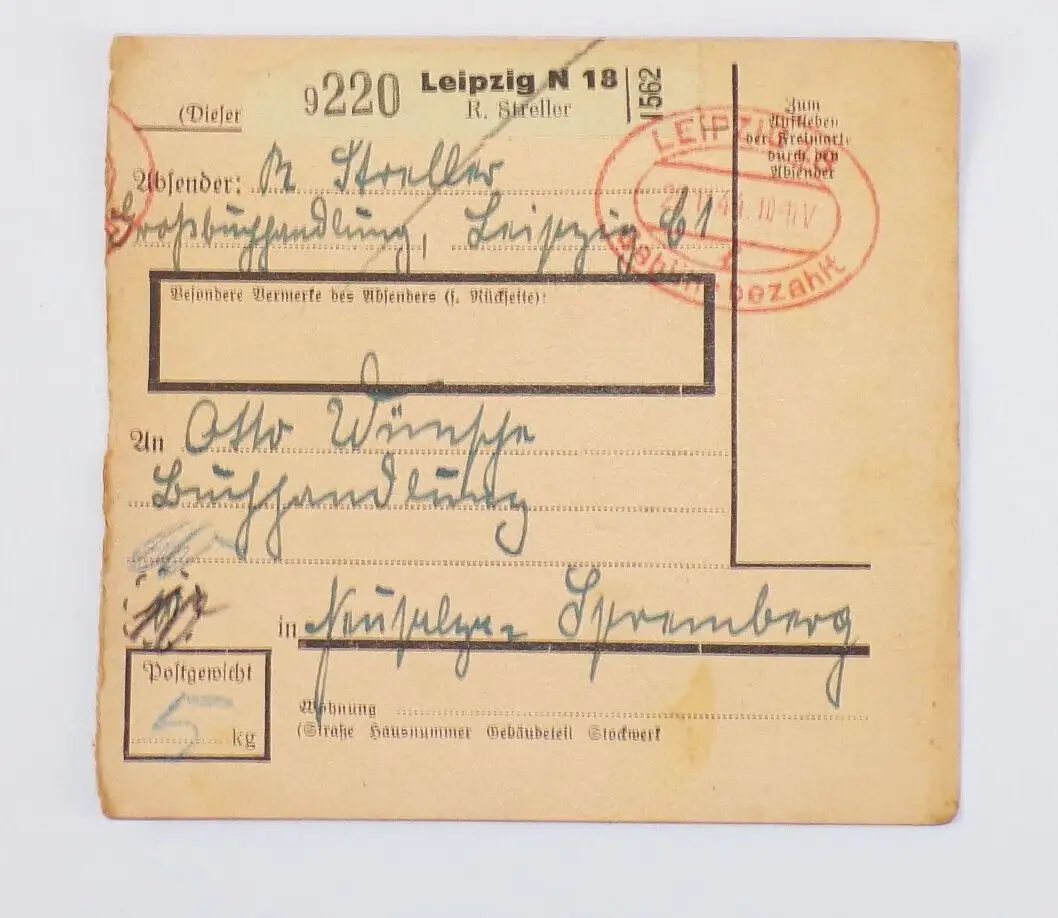 9220 Leipzig N 18 1562
R. Streller
(Dieser
Absender: R Streller
Großbuchhandlung, Leipzig C1
Besondere Vermerke des Absenders (s. Rückseite):
An Otto Wünsche
Buchhandlung
in Neusalza-Spremberg
Postgewicht
5 kg
Wohnung
(Straße Hausnummer Gebäudeteil Stockwerk
Zum
Aufkleben
der Freimark-
durch den
Absender
LEIPZIG
bezahlt